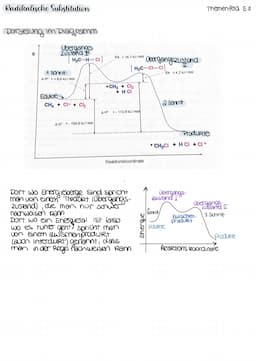 Radikalische Substitution
Themenfeld 5.2
Darstellung im Diagramm
E
Übergangs-
zustand I
[H₃C--H--Cl]
Übergangszustand II
[H₃C--Cl--Cl]
1. Schritt
Edukte
CH₄ + Cl• + Cl₂
•CH₃ + Cl₂
+ HCl
2. Schritt
Produkte
CH₃Cl + HCl + Cl•
Reaktionskoordinate
Dort wo Energieberge sind, spricht
man von einem
zustand), die man nur schwer
nachweisen kann
Dort wo ein Energietal ist (also
wo es runter geht) spricht man
von einem Zwischenprodukt
genannt, dass
man in der Regel nachweisen kann
Energie
Übergangs-
zustand I
Übergangs-
zustand II
Zwischen-
produkt
2. Schritt
Edukte
Produkte
Reaktionskoordinate